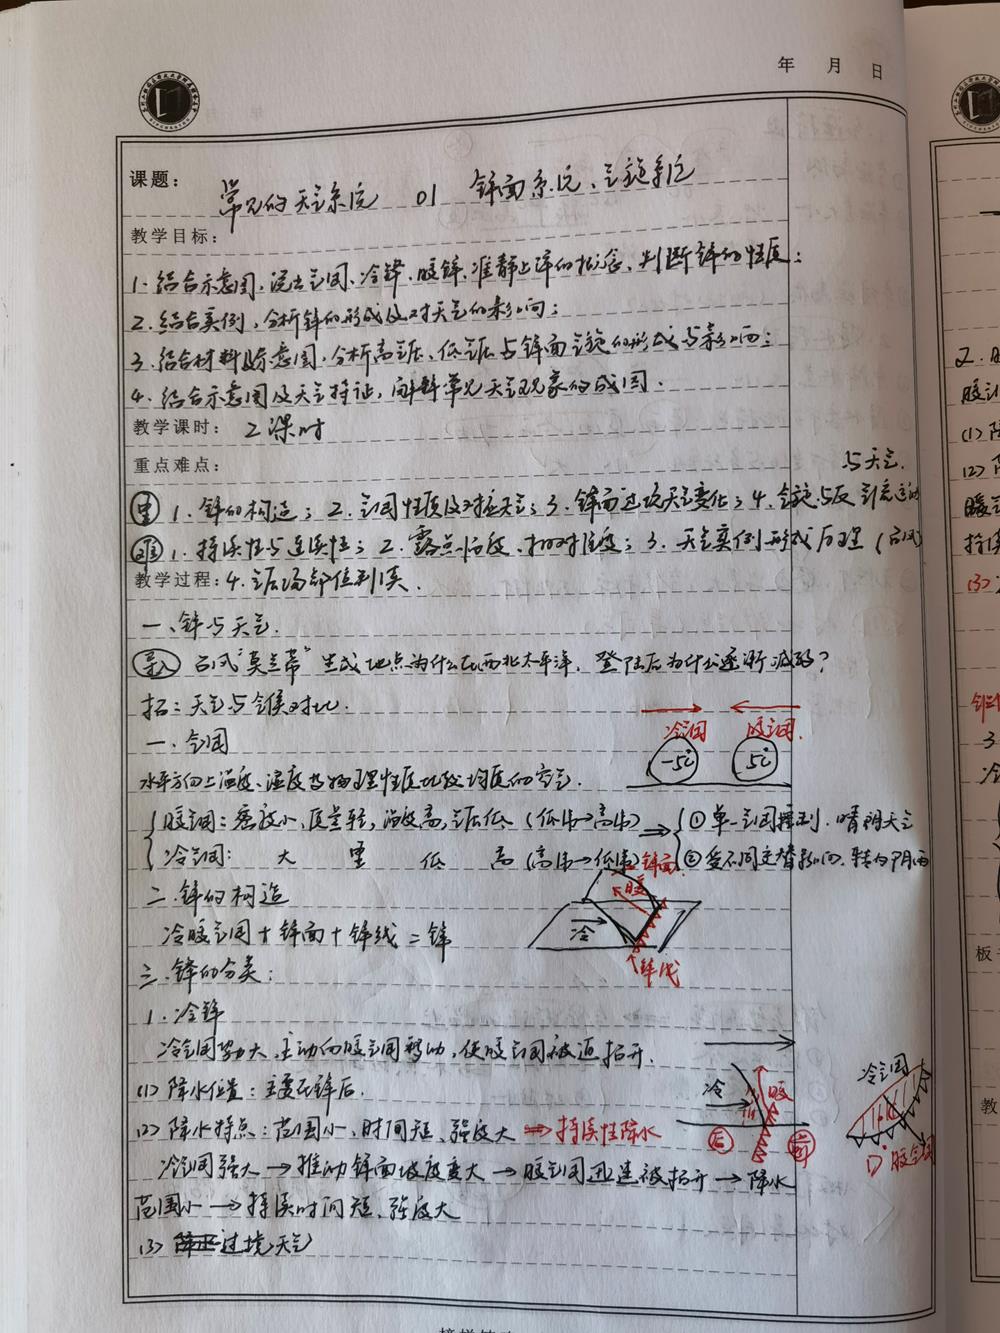 年 月 日
课题: 常见的天气系统 01 锋面系统、气旋系统
教学目标:
1. 结合示意图,说出气团、冷锋、暖锋、准静止锋的概念、判断锋的性质;
2. 结合实例,分析锋的形成及对天气的影响;
3. 结合材料及示意图,分析高压、低压与锋面气旋的形成与影响;
4. 结合示意图及天气特征,解释常见天气现象的成因.
教学课时: 2课时
重点难点:
与天气.
重 1. 锋的构造; 2. 气团性质及对应天气; 3. 锋面过境天气变化; 4. 气旋与反气旋
难 1. 持续性与连续性; 2. 露点温度、相对湿度; 3. 天气实例形成原理(台风
教学过程: 4. 气压场部位判读.
一、锋与天气.
导 台风"莫兰蒂"生成地点为什么在西北太平洋,登陆后为什么逐渐减弱?
拓: 天气与气候对比.
冷气团 暖气团.
一. 气团
-5℃ 5℃
水平方向上温度、湿度等物理性质比较均匀的空气.
暖气团: 密度小、质量轻,温度高,气压低 (低纬→高纬) ⇒ ① 单一气团控制,晴朗天气
冷气团: 大 重 低 高 (高纬→低纬) ② 受不同交替影响,转向阴雨
锋面
二. 锋的构造
暖
冷暖气团+锋面+锋线=锋
冷
三. 锋的分类:
锋线
1. 冷锋
冷气团势力大,主动向暖气团移动,使暖气团被迫抬升.
冷气团
(1) 降水位置: 主要在锋后.
冷 暖
(2) 降水特点: 范围小、时间短、强度大 ⇒ 持续性降水
后 前
D 暖气团
冷气团强大→推动锋面坡度变大→暖气团迅速被抬升→降水
范围小→持续时间短、强度大
(3) 过境天气
2.
(1)
(2)
(3)
3
板
教